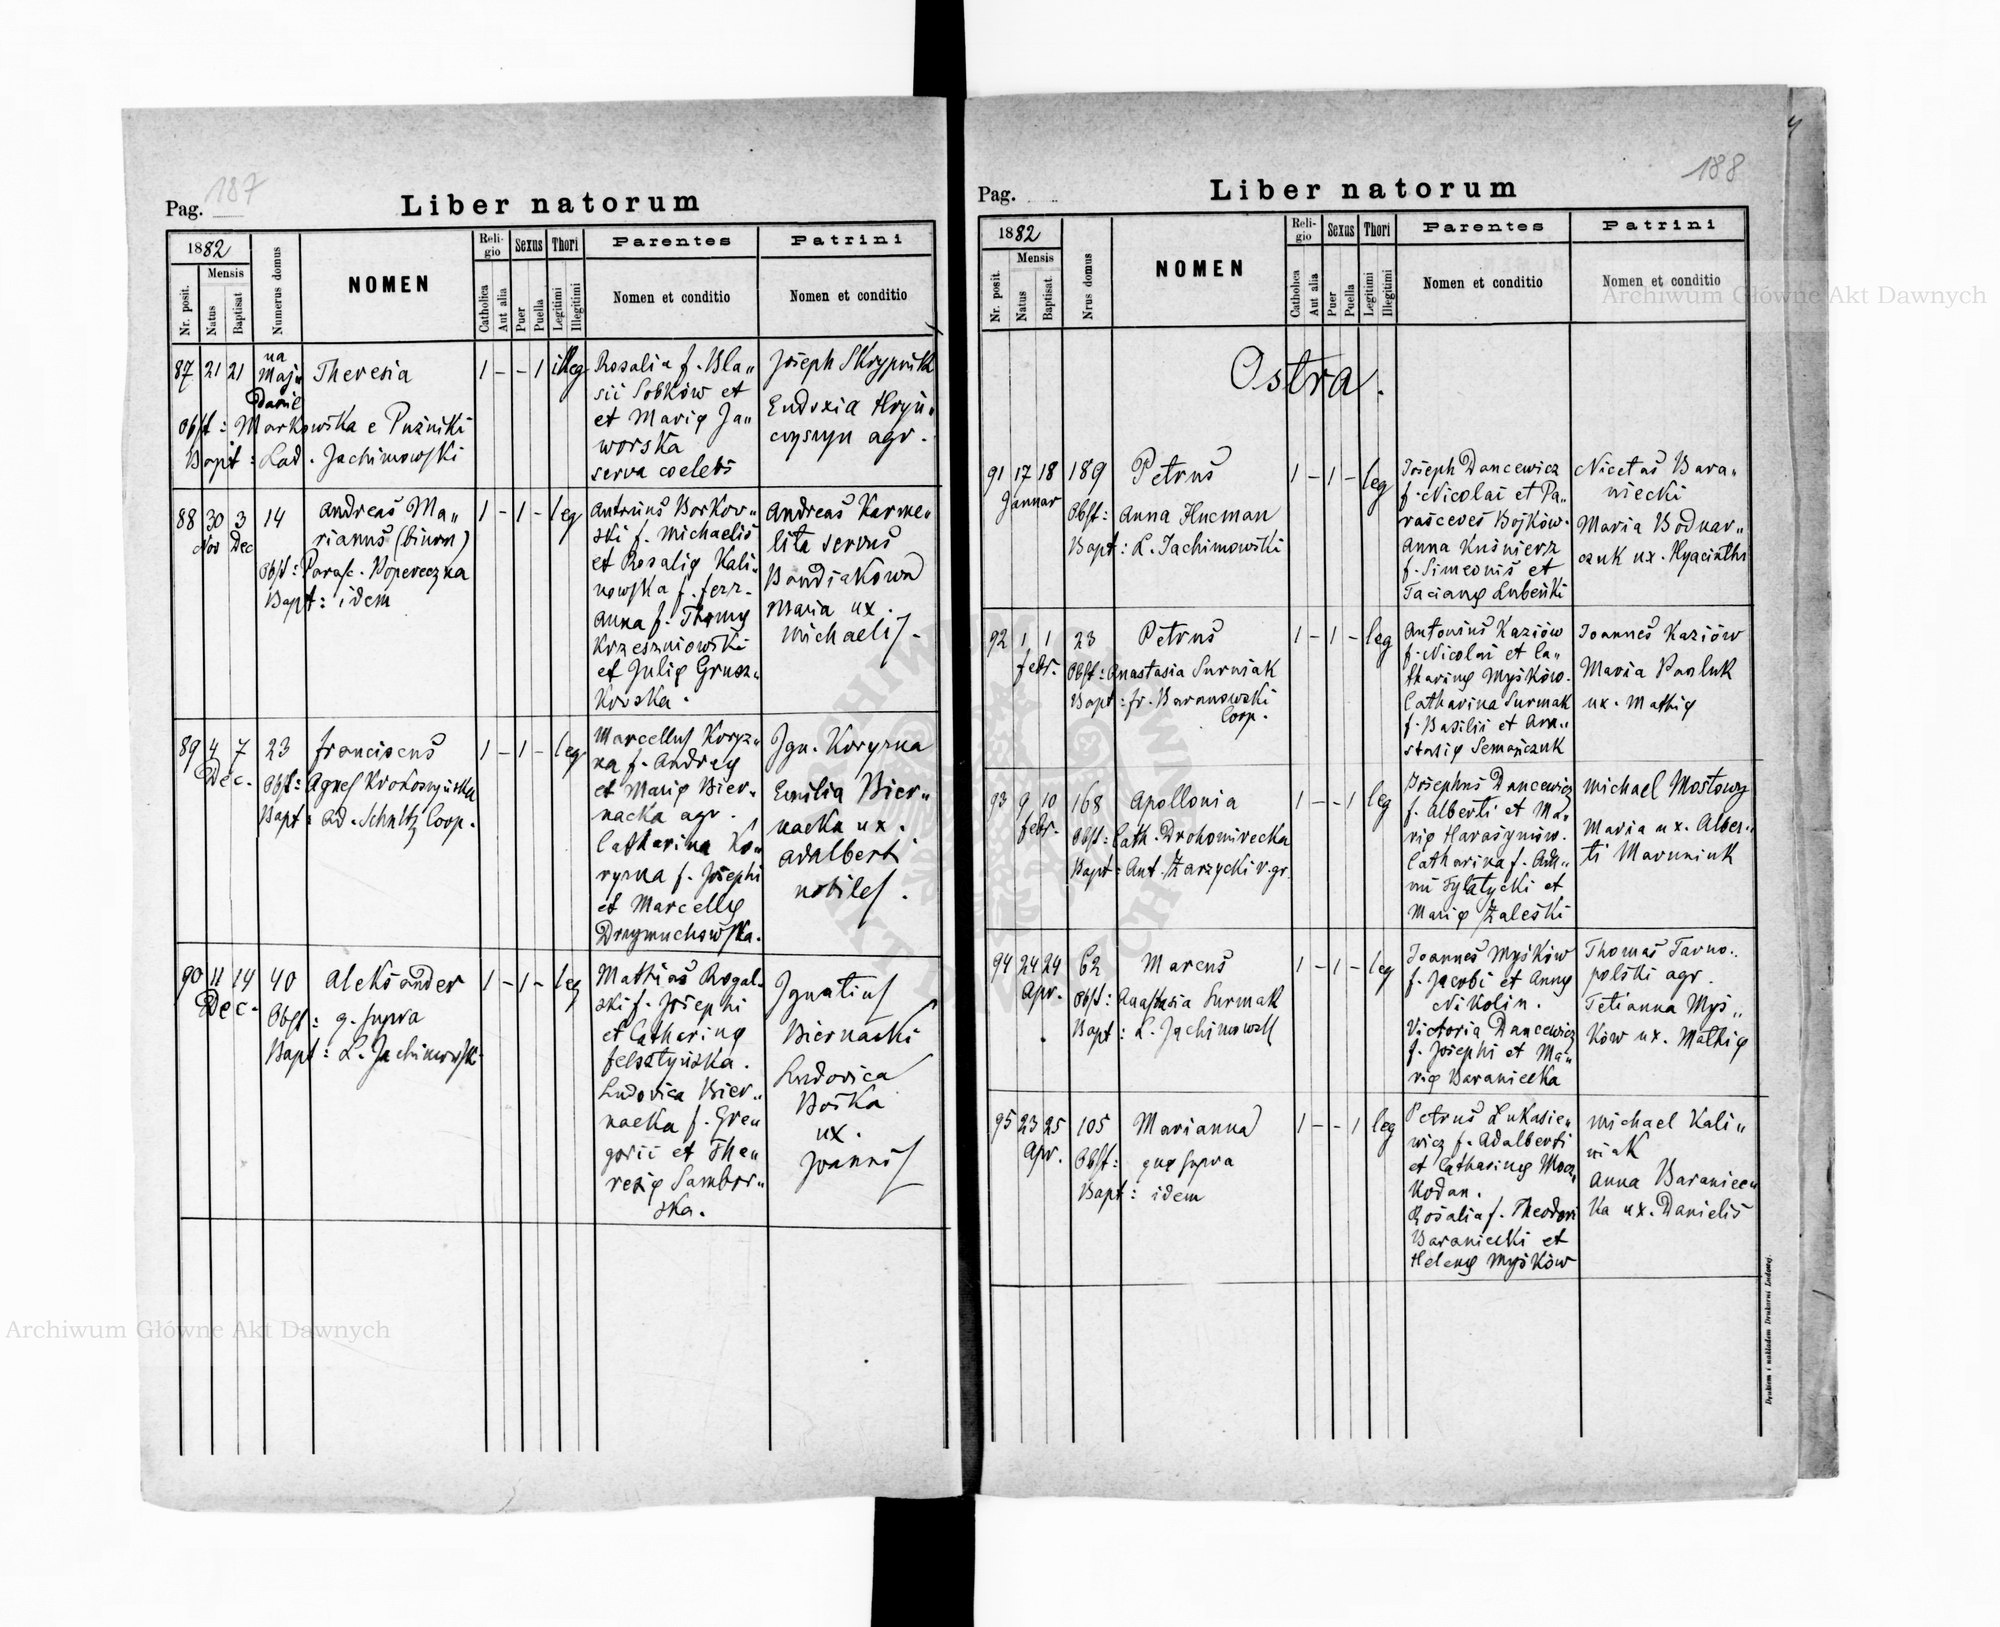 187
Pag.
Liber natorum
1882
Mensis
Nr. posit.
Natus
Baptisat
Numerus domus
NOMEN
Religio
Catholica
Aut alia
Sexus
Puer
Puella
Thori
Legitimi
Illegitimi
Parentes
Nomen et conditio
Patrini
Nomen et conditio
87 21 21 na Maj„ Danil Theresia 1 - - 1 illeg
Obst: Markowska e Puźniki
Bapt: Lad. Jachimowski
Rosalia f. Bla„
sii Sobków et
et Marię Ja„
worska
serva coelebs
Joseph Skrypnik
Eudoxia Hryń„
agr.
88 30 3 14 Andreas Ma„ 1 - 1 - leg
Nov Dec rianus (binom)
Obst: Parasc. Popereczna
Bapt: idem
Antonius Borkov„
ski f. Michaelis
et Rosalię Kali„
nowska f. ferr.
Anna f. Thomę
Krzeszniowski
et Julię Grusz„
Kovska.
Andreas Karme„
lita servus
Bondiakowa
Maria ux.
Michaelis.
89 4 7 23 Franciscus 1 - 1 - leg
Dec.
Obst: Agnes Krokoszyńska
Bapt: Ad. Schultz Coop.
Marcellus Koryz„
na f. Andreę
et Marię Bier„
nacka agr.
Catharina Ko„
ryzna f. Josephi
et Marcellę
Drzymuchowska.
Ign. Koryzna
Emilia Bier„
nacka ux.
Adalberti
nobiles.
90 11 14 40 Aleksander 1 - 1 - leg
Dec.
Obst: q. supra
Bapt: L. Jachimowski
Mathias Rogal„
ski f. Josephi
et Catharinę
Felsztyńska.
Ludovica Bier„
nacka f. Gre„
gorii et The„
resię Sambor„
ska.
Ignatius
Biernacki
Ludovica
Boska
ux.
Joannis
188
Pag.
Liber natorum
1882
Mensis
Nr. posit.
Natus
Baptisat.
Nrus domus
NOMEN
Religio
Catholica
Aut alia
Sexus
Puer
Puella
Thori
Legitimi
Illegitimi
Parentes
Nomen et conditio
Patrini
Nomen et conditio
Ostra.
91 17 18 189 Petrus 1 - 1 - leg
Januar
Obst: Anna Hucman
Bapt: L. Jachimowski
Joseph Dancewicz
f. Nicolai et Pa„
rasceves Bojków.
Anna Kuśnierz
f. Simeonis et
Tacianę Lubeński
Nicetas Bara„
niecki
Maria Bodnar„
czuk ux. Hyacinthi
92 1 1 23 Petrus 1 - 1 - leg
febr.
Obst: Anastasia Surmak
Bapt: fr. Baranowski
Coop.
Antonius Kaziów
f. Nicolai et Ca„
tharinę Myśków.
Catharina Surmak
f. Basilii et Ana„
stasię Semańczuk
Joannes Kaziów
Maria Pawluk
ux. Mathię
93 9 10 168 Apollonia 1 - - 1 leg
febr.
Obst: Cath. Drohomirecka
Bapt: Ant. Zarzycki r. gr.
Josephus Dancewicz
f. Alberti et Ma„
rię Harasymów.
Catharina f. Ada„
mi Sylatycki et
Marię Zaleski
Michael Mostowy
Maria ux. Alber„
ti Maruniuk
94 24 24 62 Marcus 1 - 1 - leg
Apr.
Obst: Anastasia Surmak
Bapt: L. Jachimowski
Joannes Myśków
f. Jacobi et Annę
Nikolin.
Victoria Dancewicz
f. Josephi et Ma„
rię Baraniecka
Thomas Tarno„
polski agr.
Tetianna Myś„
ków ux. Mathię
95 23 25 105 Marianna 1 - - 1 leg
Apr.
Obst: quę supra
Bapt: idem
Petrus Łukasie„
wicz f. Adalberti
et Catharinę Mocz„
kodan.
Rosalia f. Theodori
Baraniecki et
Helenę Myśków
Michael Kali„
niak
Anna Baraniec„
ka ux. Danielis
Drukiem i nakładem Drukarni Ludowej.
Archiwum Główne Akt Dawnych
Archiwum Główne Akt Dawnych